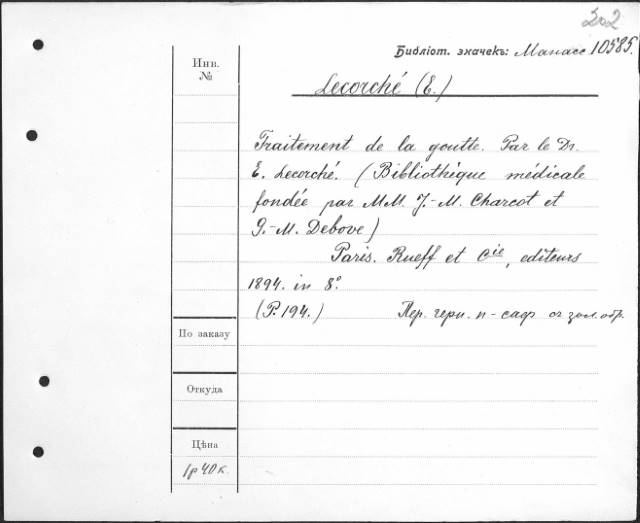 202
Библіот. значекъ: Манасс 10585.
Инв.
№
Lecorché (E.)
Traitement de la goutte. Par le Dr.
E. Lecorché. (Bibliothèque médicale
fondée par MM. J.-M. Charcot et
G.-M. Debove)
Paris. Rueff et Cie, editeurs
1894. in 8º.
(P. 194.)
Пер. черн. п-саф с зол. обр.
По заказу
Откуда
Цѣна
1р 40к.